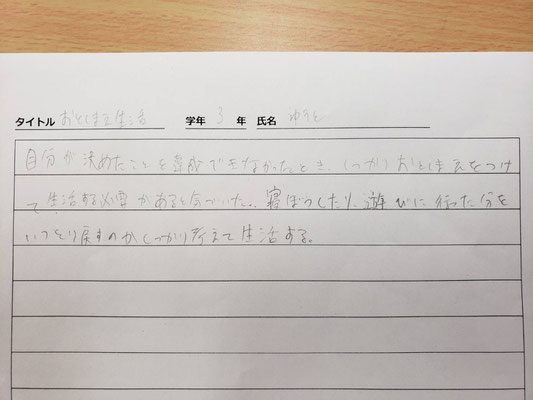 タイトル おとしまえ生活 学年 3 年 氏名
自分が決めたことを達成できなかったとき、しっかりおとしまえをつけ
て生活する必要があると気づいた。寝ぼうしたり、遊びに行った分を
いつとり戻すのかしっかり考えて生活する。